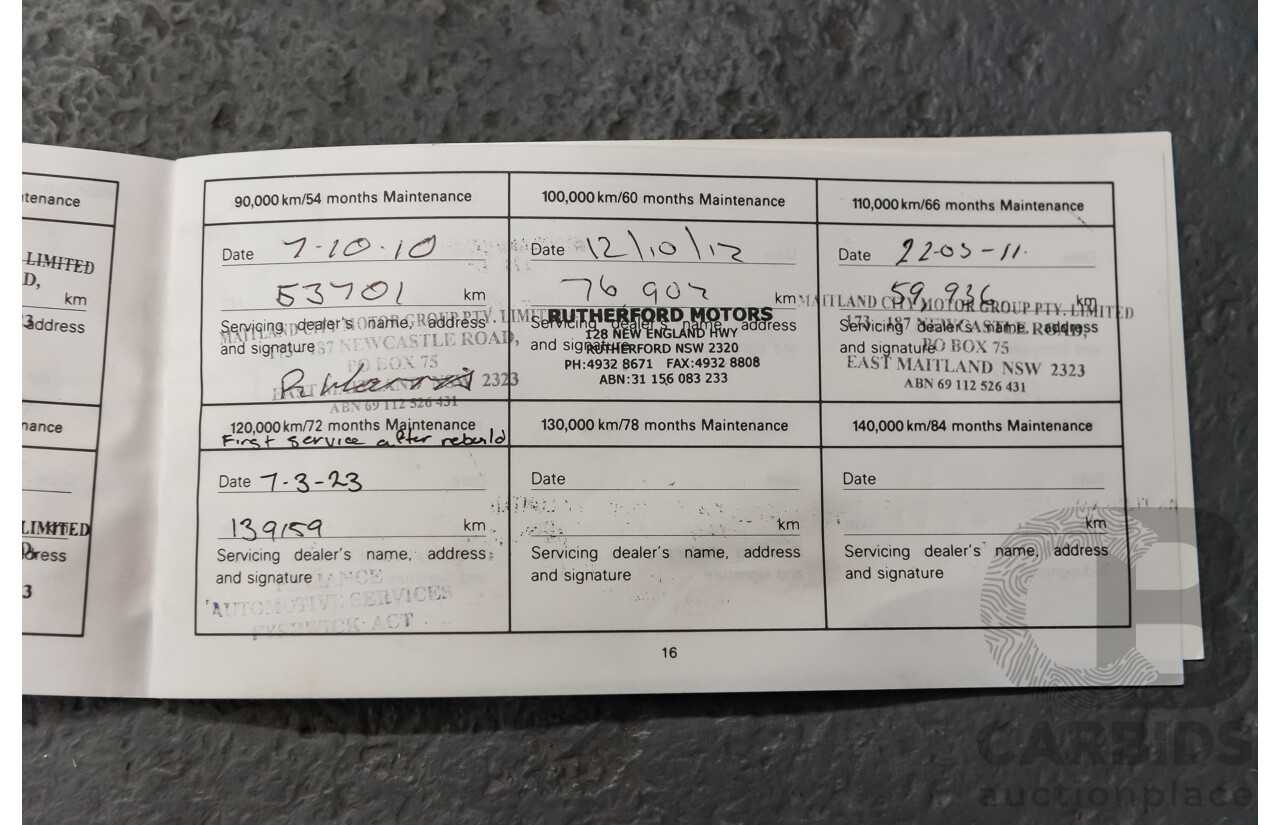 tenance
LIMITED
D,
km
address
nance
LIMITED
km
dress
3
90,000 km/54 months Maintenance
Date 7-10-10
53701 km
Servicing dealer's name, address
and signature
MAITLAND CITY MOTOR GROUP PTY. LIMITED
173 - 187 NEWCASTLE ROAD,
PO BOX 75
EAST MAITLAND NSW 2323
ABN 69 112 526 431
100,000 km/60 months Maintenance
Date 12/10/12
76 902 km
Servicing dealer's name, address
and signature
RUTHERFORD MOTORS
128 NEW ENGLAND HWY
RUTHERFORD NSW 2320
PH:4932 8671 FAX:4932 8808
ABN:31 156 083 233
110,000 km/66 months Maintenance
Date 22-03-11.
59,936 km
Servicing dealer's name, address
and signature
MAITLAND CITY MOTOR GROUP PTY. LIMITED
173 - 187 NEWCASTLE ROAD,
PO BOX 75
EAST MAITLAND NSW 2323
ABN 69 112 526 431
120,000 km/72 months Maintenance
First service after rebuild
Date 7-3-23
139159 km
Servicing dealer's name, address
and signature
AUTOMOTIVE SERVICES
FYSHWICK ACT
130,000 km/78 months Maintenance
Date
km
Servicing dealer's name, address
and signature
140,000 km/84 months Maintenance
Date
km
Servicing dealer's name, address
and signature
16
CARBIDS
auctionplace